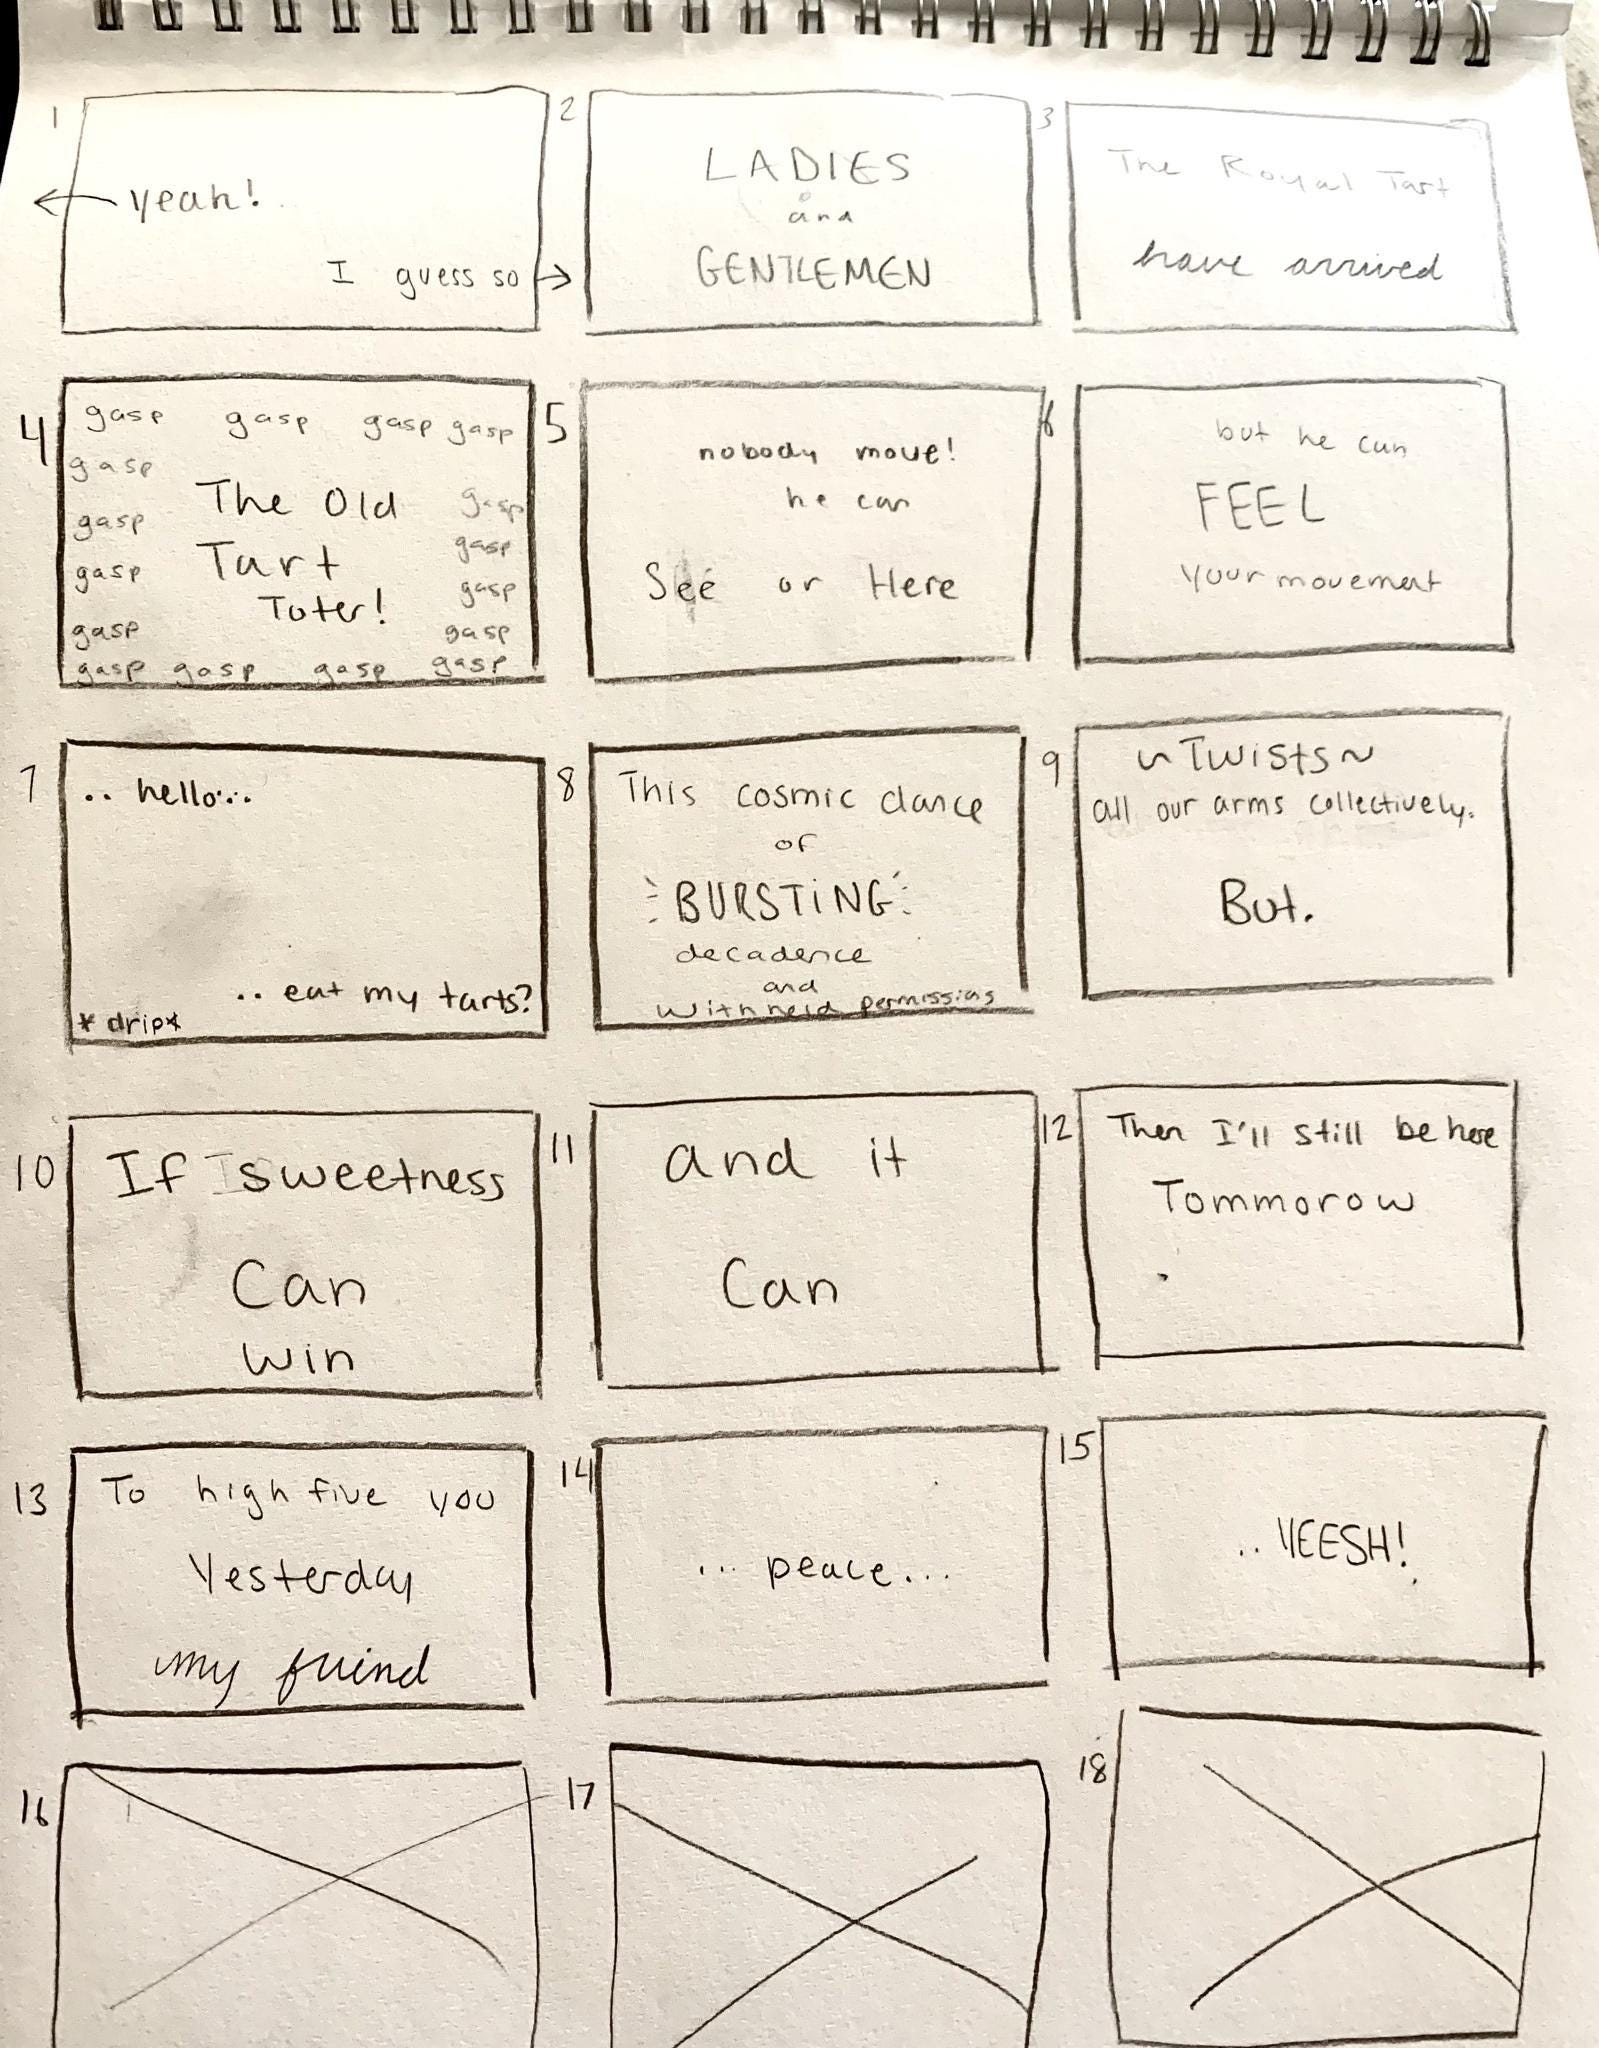 1
yeah!
I guess so
2
LADIES
and
GENTLEMEN
3
The Royal Tart
have arrived
4
gasp gasp gasp gasp
gasp
The Old gasp
gasp
Tart gasp
gasp
Toter! gasp
gasp gasp
gasp gasp gasp gasp
5
nobody move!
he can
See or Here
6
but he can
FEEL
your movement
7
.. hello...
.. eat my tarts?
*drip*
8
This cosmic dance
of
BURSTiNG
decadence
and
withheld permissions
9
~Twists~
all our arms collectively.
But.
10
If I sweetness
Can
win
11
and it
Can
12
Then I'll still be here
Tommorow
13
To high five you
Yesterday
my friend
14
... peace...
15
.. YEESH!
16
17
18